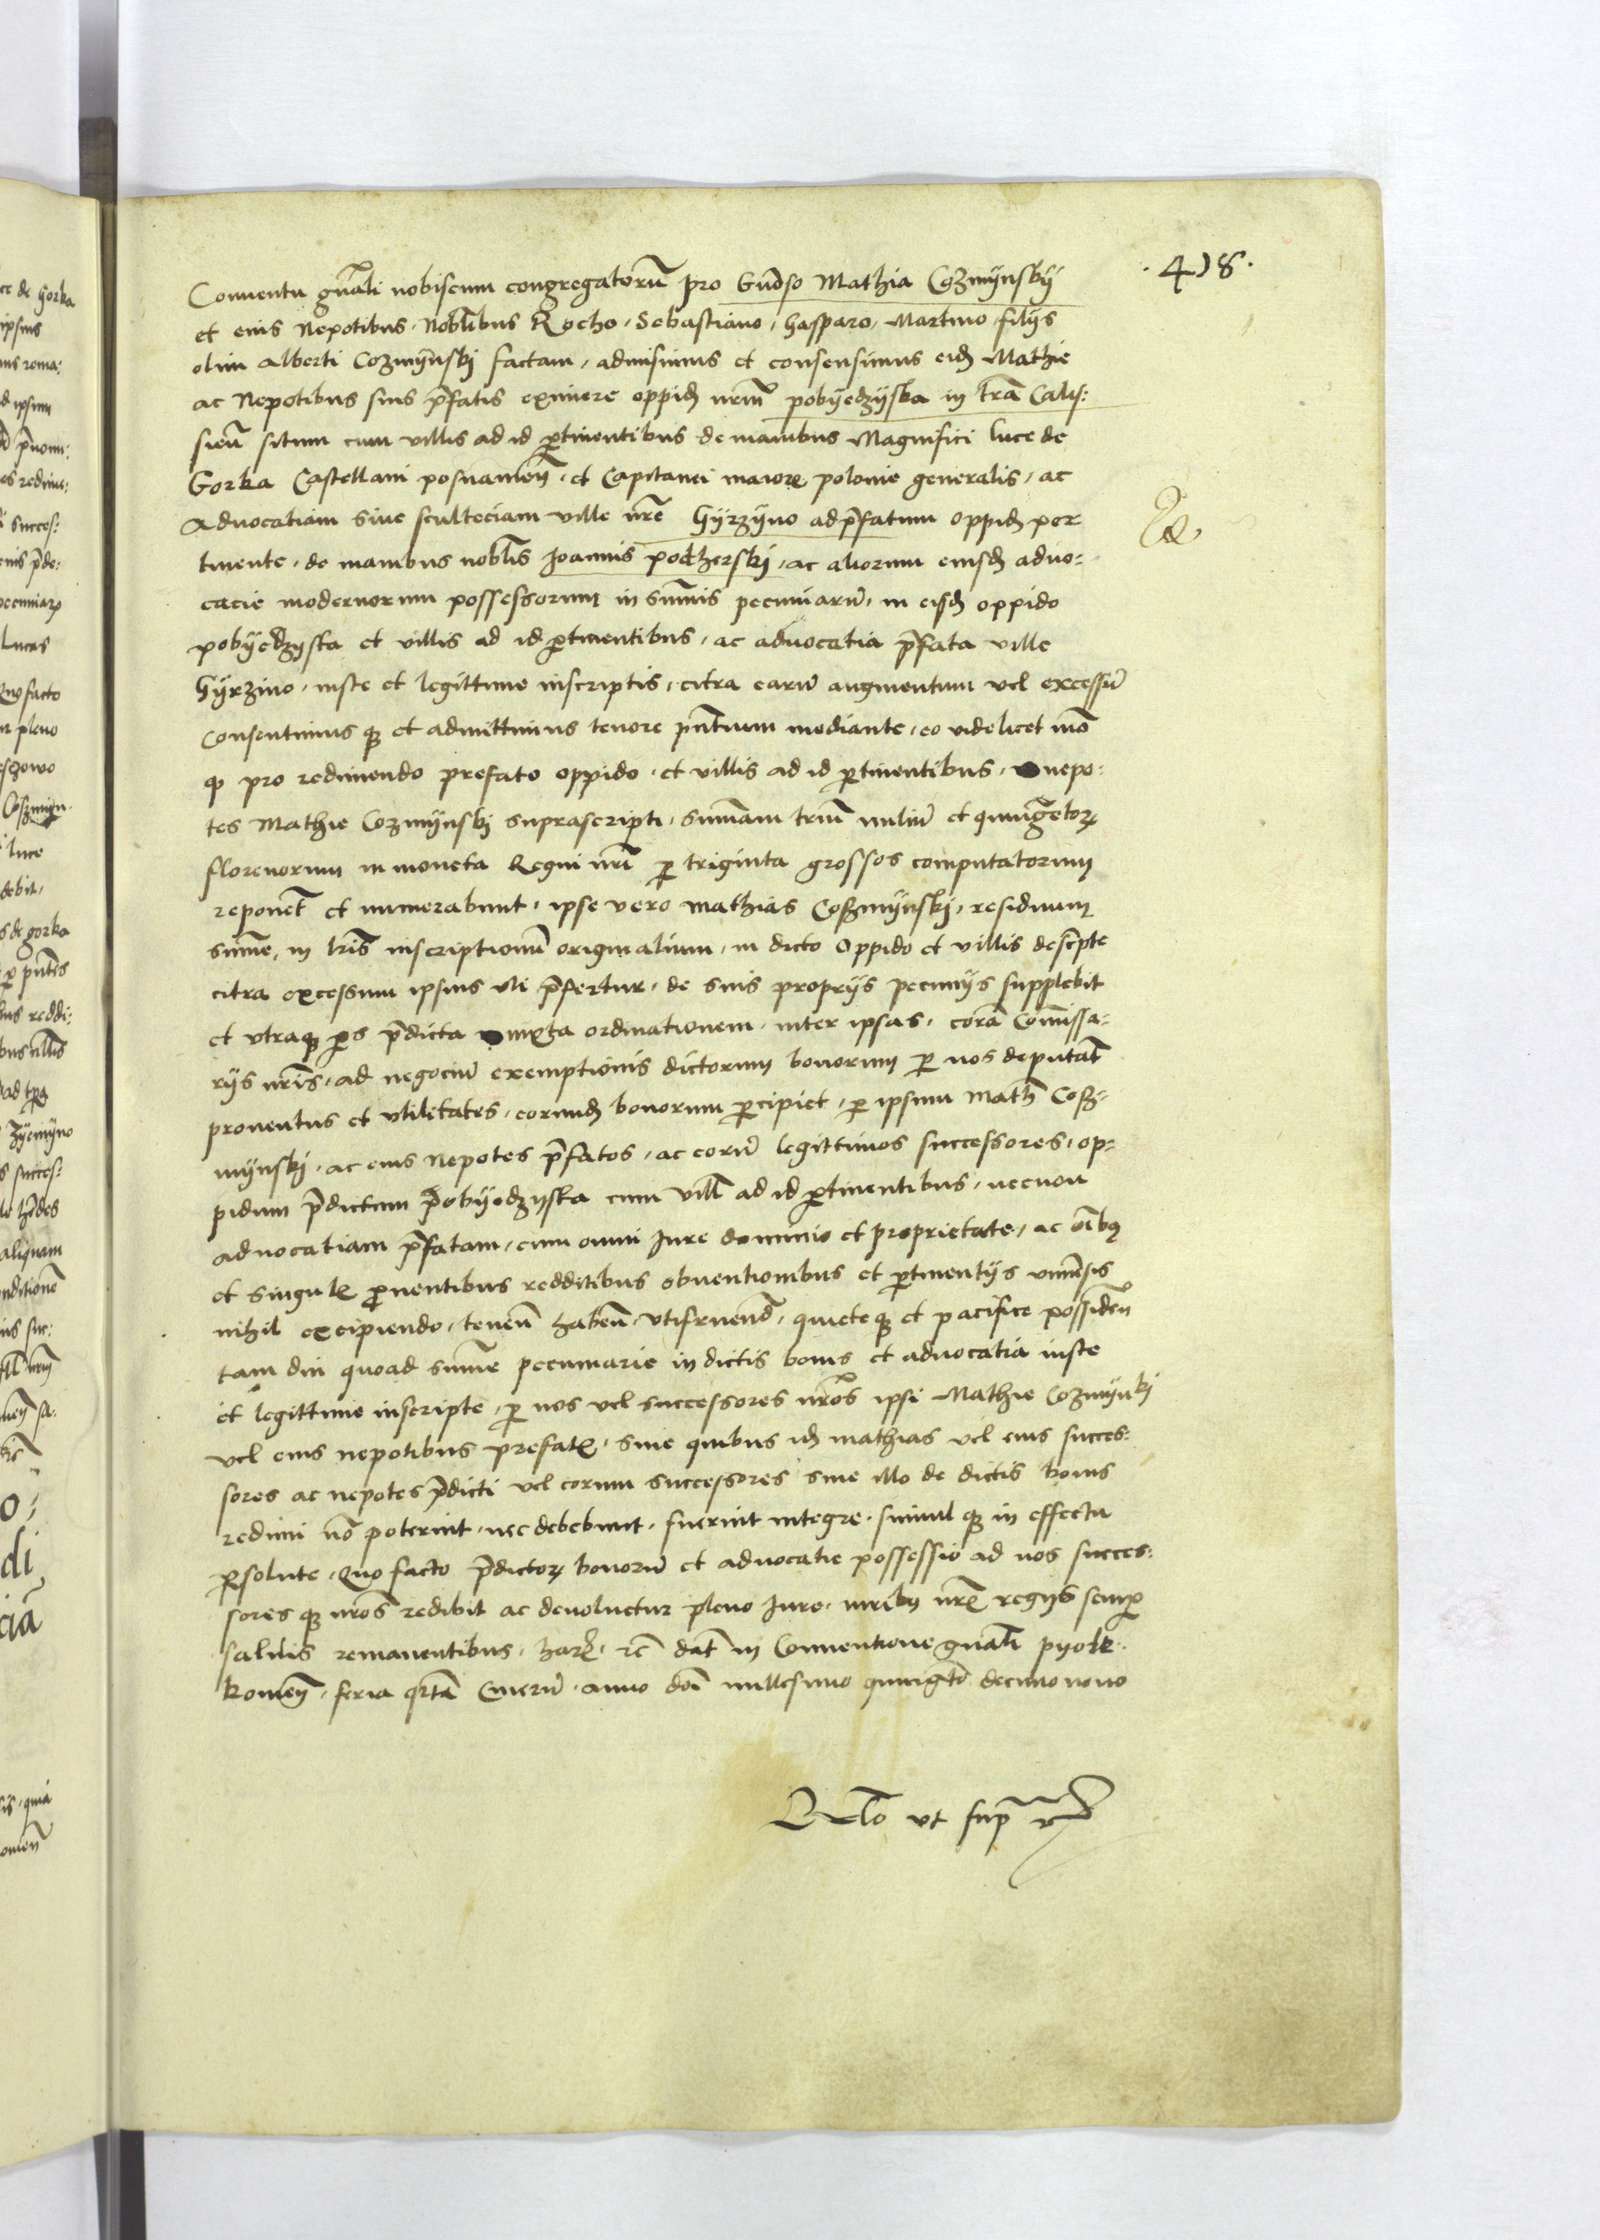 ·418·
Conuentu gnāli nobiscum congregatorū pro Gnōso Mathia Cozmijnskij
et eius Nepotibus Nobĺibus Rocho, Sebastiano, Gasparo, Martino filijs
olim Alberti Cozmijnski factam, admisimus et consensimus eidē Mathie
ac Nepotibus suis prēfatis eximere oppidū nrm̄ pobijedzijska in trā Calis:
sieñ situm cum villis ad id ptinentibus de manibus Magnifici Luce de
Gorka Castellani posnanieñ et Capitanei maioris polonie generalis, ac
Aduocatiam siue sculteciam ville nrē Gijrzijno ad prēfatum oppidū per
tinente, de manibus nobĺis Joannis podzerski, ac aliorum eiusdē aduo:
cacie modernorum possessorum in sūmis pecuniarū, in eisdē oppido
pobijedzijska et villis ad id ptinentibus, ac aduocatia prēfata ville
Gijrzino, iuste et legittime inscriptis, citra earū augmentum vel excessū
Consentimus qȝ et admittimus tenore pn̄tium mediante, eo videlicet mō
qȝ pro redimendo prefato oppido et villis ad id ptinentibus, nepo:
tes Mathie Cozmijnski suprascripti, sūmam triū miliū et quingētoꝝ
florenorum in moneta Regni nrī p triginta grossos computatorum
reponēt et numerabunt, ipse vero Mathias Coßmijnski, residuum
sūme, in lrīs inscriptionū originalium, in dicto Oppido et villis descpte
citra excessum ipsius vti prēfertur, de suis proprijs pecunijs supplebit
et vtraqȝ ps prēdicta iuxta ordinationem inter ipsas, corā Cōmissa:
rijs nrīs, ad negociū exemptionis dictorum bonorum p nos deputat̄
prouentus et vtilitates, eorundē bonorum pcipiet, p ipsum Math̄ Coß:
mijnski, ac eius Nepotes prēfatos, ac eorū legittimos successores, op:
pidum prēdictum pobijedzijska cum vill̄ ad id ptinentibus, necnon
aduocatiam prēfatam, cum omni Jure dominio et proprietate, ac oībȝ
et singul̄ puentibus redditibus obuentionibus et ptinentijs vniūsis
nihil excipiendo, teneñ habeñ, vtifruend̄, quiete qȝ et pacifice possideñ
tam diu quoad sūme pecuniarie in dictis bonis et aduocatia iuste
et legittime inscripte, p nos vel successores nrōs ipsi Mathie Cozmijnki
vel eius nepotibus prefat̄, sine quibus idē Mathias vel eius succes:
sores ac nepotes prēdicti vel eorum successores sine illo de dictis bonis
redimi nō poterint, nec debebunt, fuerint integre simul qȝ in effectu
psolute, Quo facto prēdictoꝝ bonorū et aduocatie possessio ad nos succes:
sores qȝ nrōs redibit ac deuoluetur pleno Jure, iuribȝ nrīs regijs semp
saluis remanentibus, har̄ rē dat̄ in Conuentione gnāli pyotr:
komieñ, feria qrta Cinerū, anno dōi millesimo quingētō decimonono
Relō vt supra